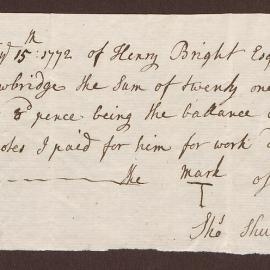 15th 1772 of Henry Bright Esq
wbridge the Sum of twenty one
8d pence being the ballance
otes I paid for him for work
the mark of
Thos Shu